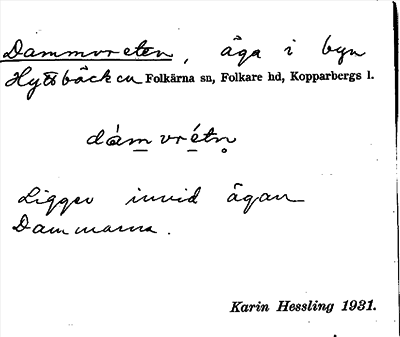 Dammvreten, äga i byn
Hyttbäcken Folkärna sn, Folkare hd, Kopparbergs l.
dám vrétn̥
Ligger invid ägan
Dammarna.
Karin Hessling 1931.